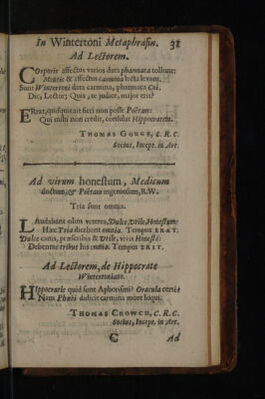 In Wintertoni Metaphrasin. 31
Ad Lectorem.
Corporis affectus varios data pharmaca tollunt:
Mentis & affectus carmina lecta levant.
Sunt Wintertoni data carmina, pharmaca Coi.
Dic, Lector; Quis, te judice, major erit?
Erras, quisquis ait fieri non posse Poëtam:
Qui mihi non credit, consulat Hippocratem.
Thomas Gorge, C. R. C.
Socius, Incept. in Art.
Ad virum honestum, Medicum
doctum, & Poëtam ingeniosum, R. W.
Tria sunt omnia.
Laudabant olim veteres, Dulce, Utile, Honestum:
Hæc Tria dicebant omnia. Tempus ERAT.
Dulce canis, præscribis & Utile, vivis Honestè:
Debemus tribus his omnia. Tempus ERIT.
Ad Lectorem, de Hippocrate
Wintertoniano.
Hippocratis quid sunt Aphorismi? Oracula certè:
Nam Phœbi didicit carmina more loqui.
Thomas Crowch, C. R. C.
Socius, Incept. in Art.
C Ad